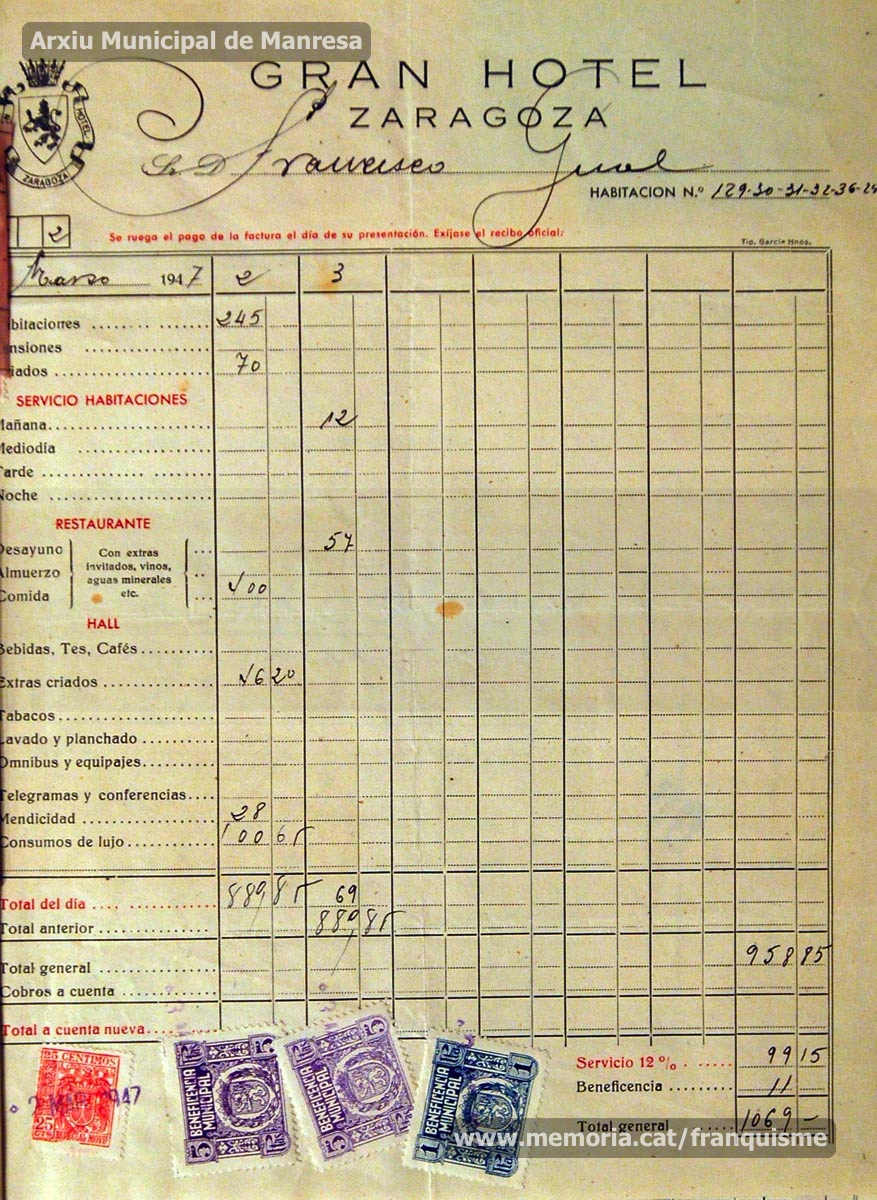 Arxiu Municipal de Manresa
GRAN HOTEL
ZARAGOZA
HOTEL
ZARAGOZA
Sr. D. Francisco Gual
HABITACION N.º 129-30-31-32-36-24
2
Se ruega el pago de la factura el día de su presentación. Exíjase el recibo oficial.
Tip. García Hnos.
Marzo 1947 2 3
bitaciones 245
nsiones
iados 70
SERVICIO HABITACIONES
Mañana 12
Mediodía
Tarde
Noche
RESTAURANTE
Desayuno 57
Almuerzo
Comida 400
Con extras
invitados, vinos,
aguas minerales
etc.
HALL
Bebidas, Tes, Cafés
Extras criados 46 20
Tabacos
Lavado y planchado
Omnibus y equipajes
Telegramas y conferencias
Mendicidad 28
Consumos de lujo 100 65
Total del día 889 85 69
Total anterior 889 85
Total general 958 85
Cobros a cuenta
Total a cuenta nueva
Servicio 12 % 99 15
Beneficencia 11
Total general 1069 -
25 CENTIMOS
25 CTS
MAR 1947
5 BENEFICENCIA MUNICIPAL 5
5 BENEFICENCIA MUNICIPAL 5
1 BENEFICENCIA MUNICIPAL 1
www.memoria.cat/franquisme